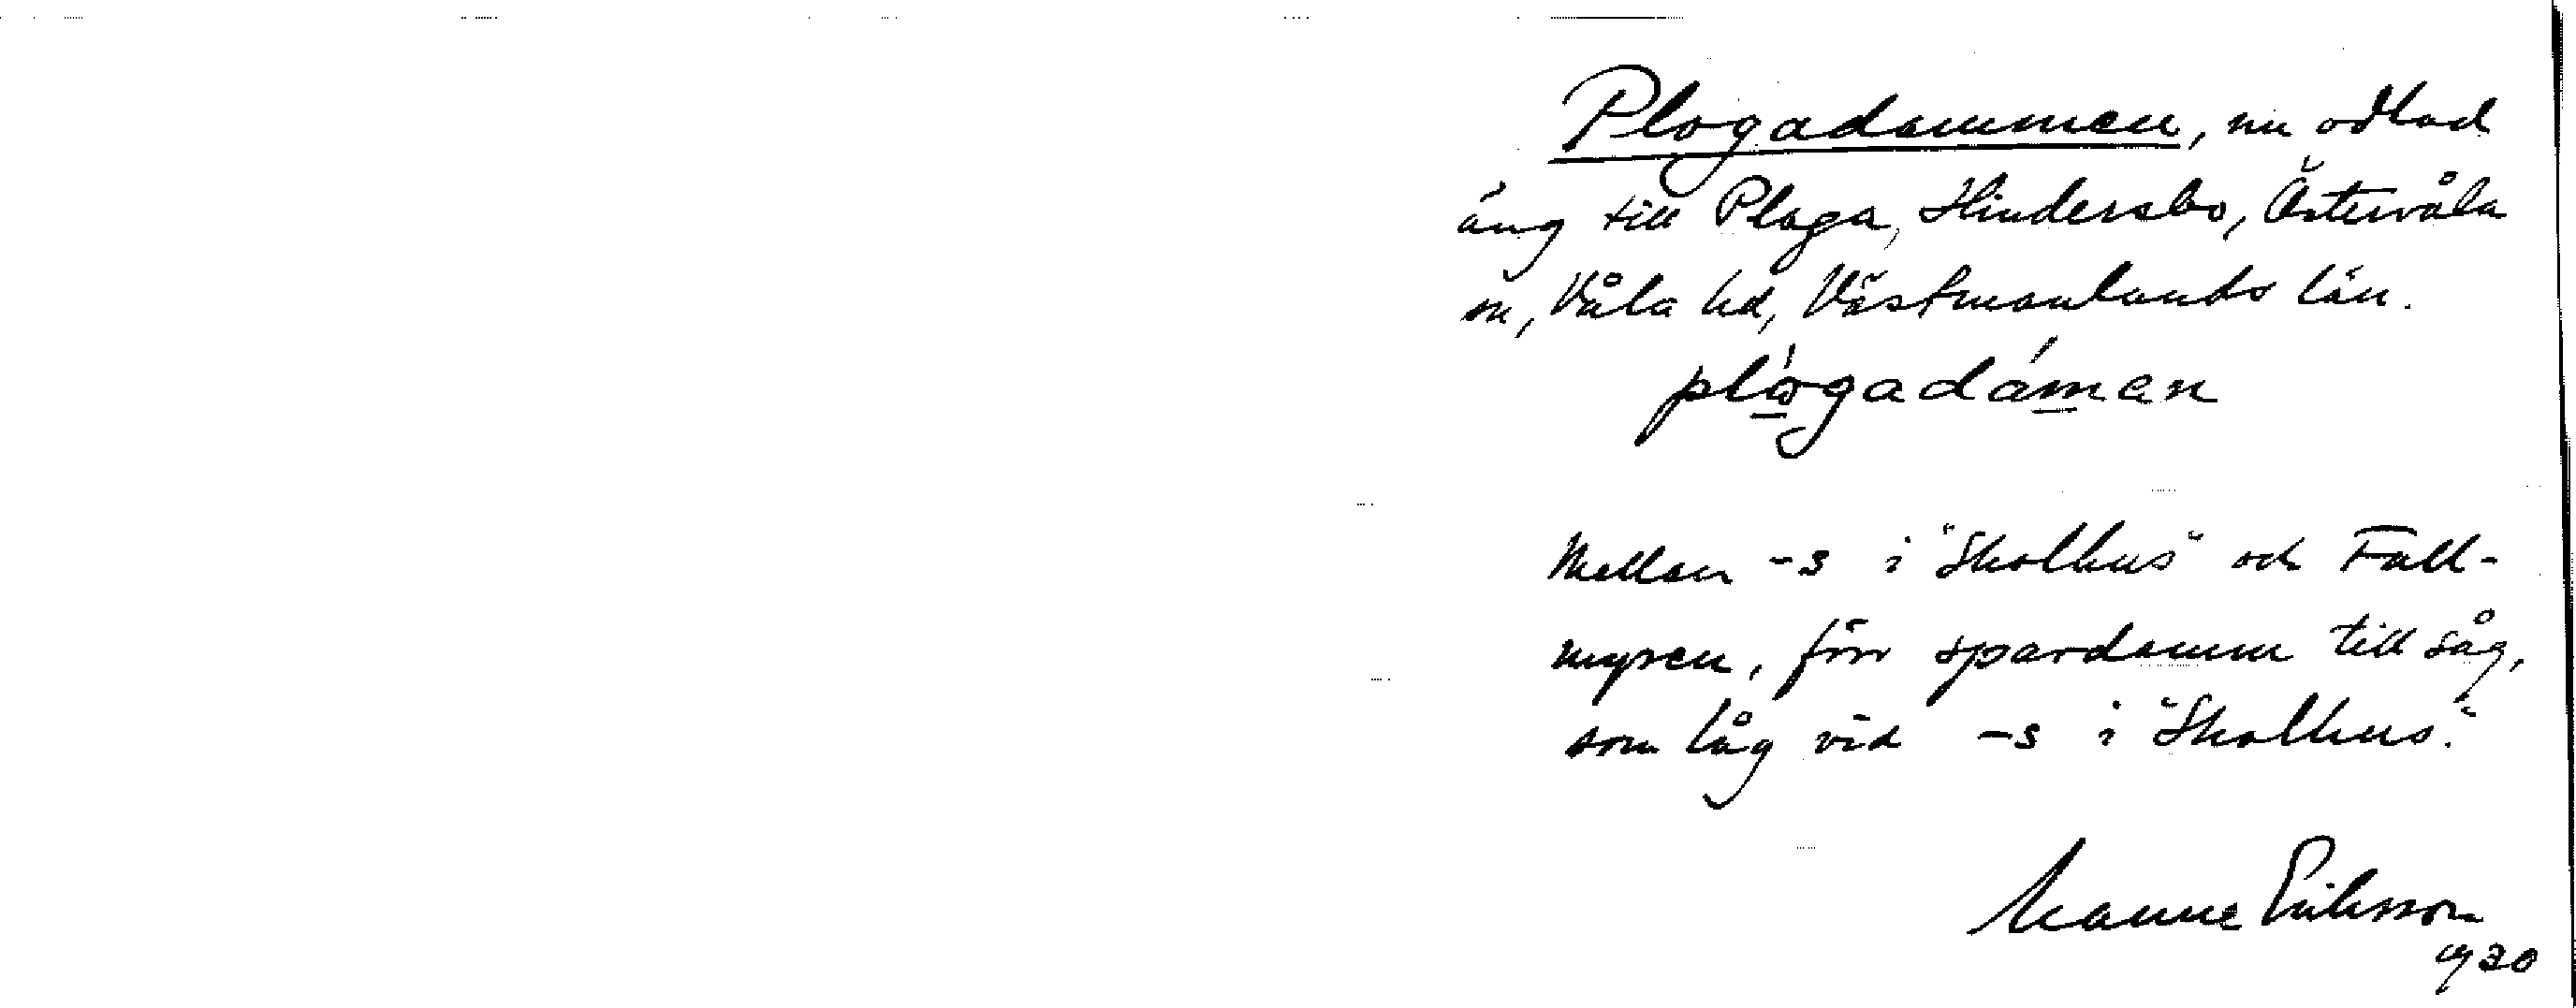 Plogadammen, nu odlad
äng till Ploga, Hindersbo, Östervåla
sn, Våla hd, Västmanlands län.
plógadáman
Mellan -s i "Skolhus" och Fall-
myren, förr spardamm till såg,
som låg vid -s i "Skolhus".
Manne Eriksson
930